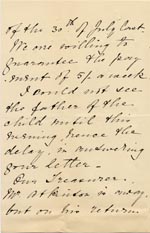 of the 30th of July last.
We are willing to
guarantee the pay
ment of 5/ a week
I could not see
the father of the
child until this
evening hence the
delay in answering
your letter.
Our Treasurer
Mr Atkinson is away
but on his return